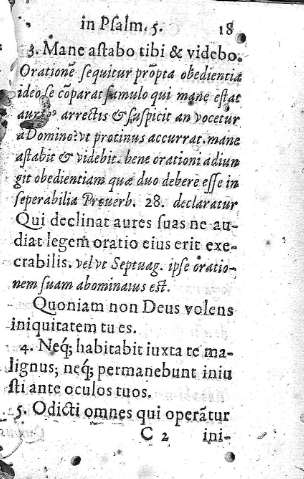 in Psalm. 5. 18
3. Mane astabo tibi & videbo.
Orationē sequitur prōpta obedientia
ideo se cōparat famulo qui mane estat
arrectis & suspicit an vocetur
a Domino: vt protinus accurrat. mane
astabit & videbit. bene orationi adiun
git obedientiam quæ duo debere esse in
seperabilia Prouerb. 28. declaratur
Qui declinat aures suas ne au-
diat legem oratio eius erit exe-
crabilis. velvt Septuag. ipse oratio-
nem suam abominatus est.
Quoniam non Deus volens
iniquitatem tu es.
4. Neq; habitabit iuxta te ma-
lignus; neq; permanebunt iniu
sti ante oculos tuos.
5. Odisti omnes qui operātur
C 2 ini-